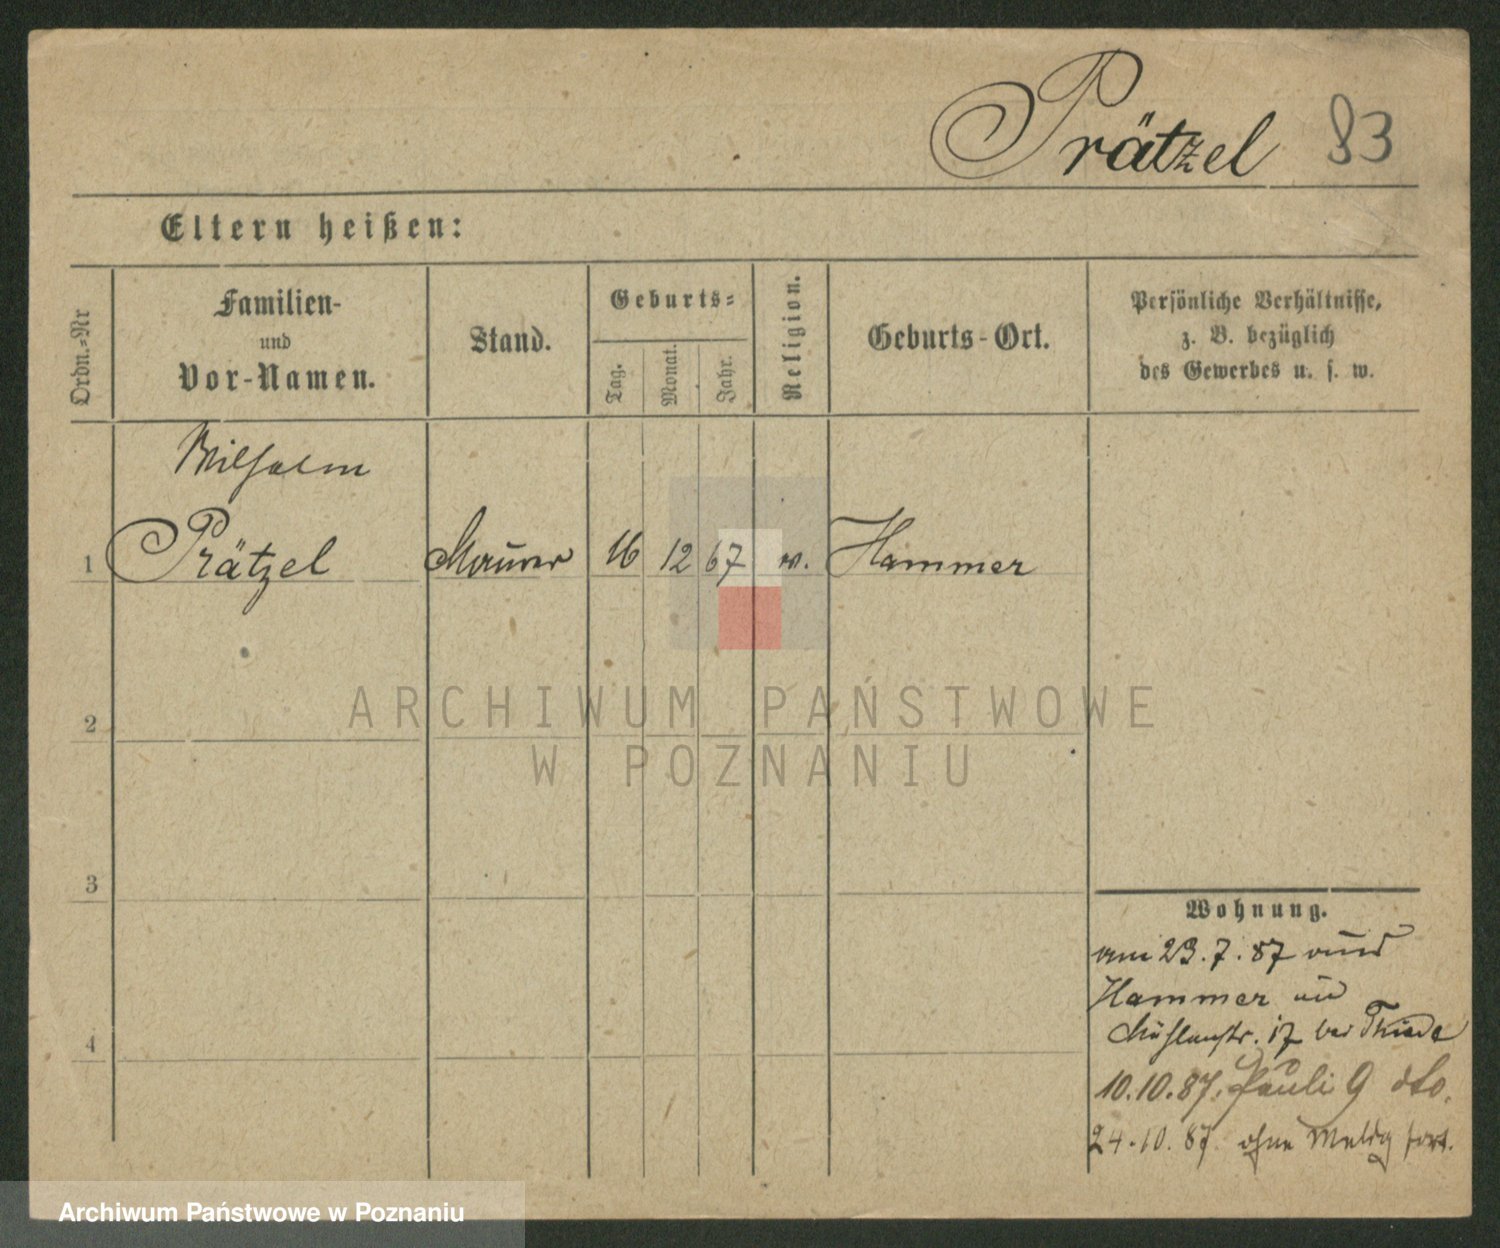 Prätzel 83
Eltern heißen:
Ordn.-Nr
Familien-
und
Vor-Namen.
Stand.
Geburts-
Tag.
Monat.
Jahr.
Religion.
Geburts-Ort.
Persönliche Verhältnisse,
z. B. bezüglich
des Gewerbes u. s. w.
Wilhelm
1 Prätzel Maurer 16 12 67 Hammer
2
3
4
Wohnung.
am 23.7.87 aus
Hammer
Mühlenstr. 17 bei Thiede
10.10.87. Pauli 9 dto.
24.10.87 ohne Meldg fort.
ARCHIWUM PAŃSTWOWE
W POZNANIU
Archiwum Państwowe w Poznaniu